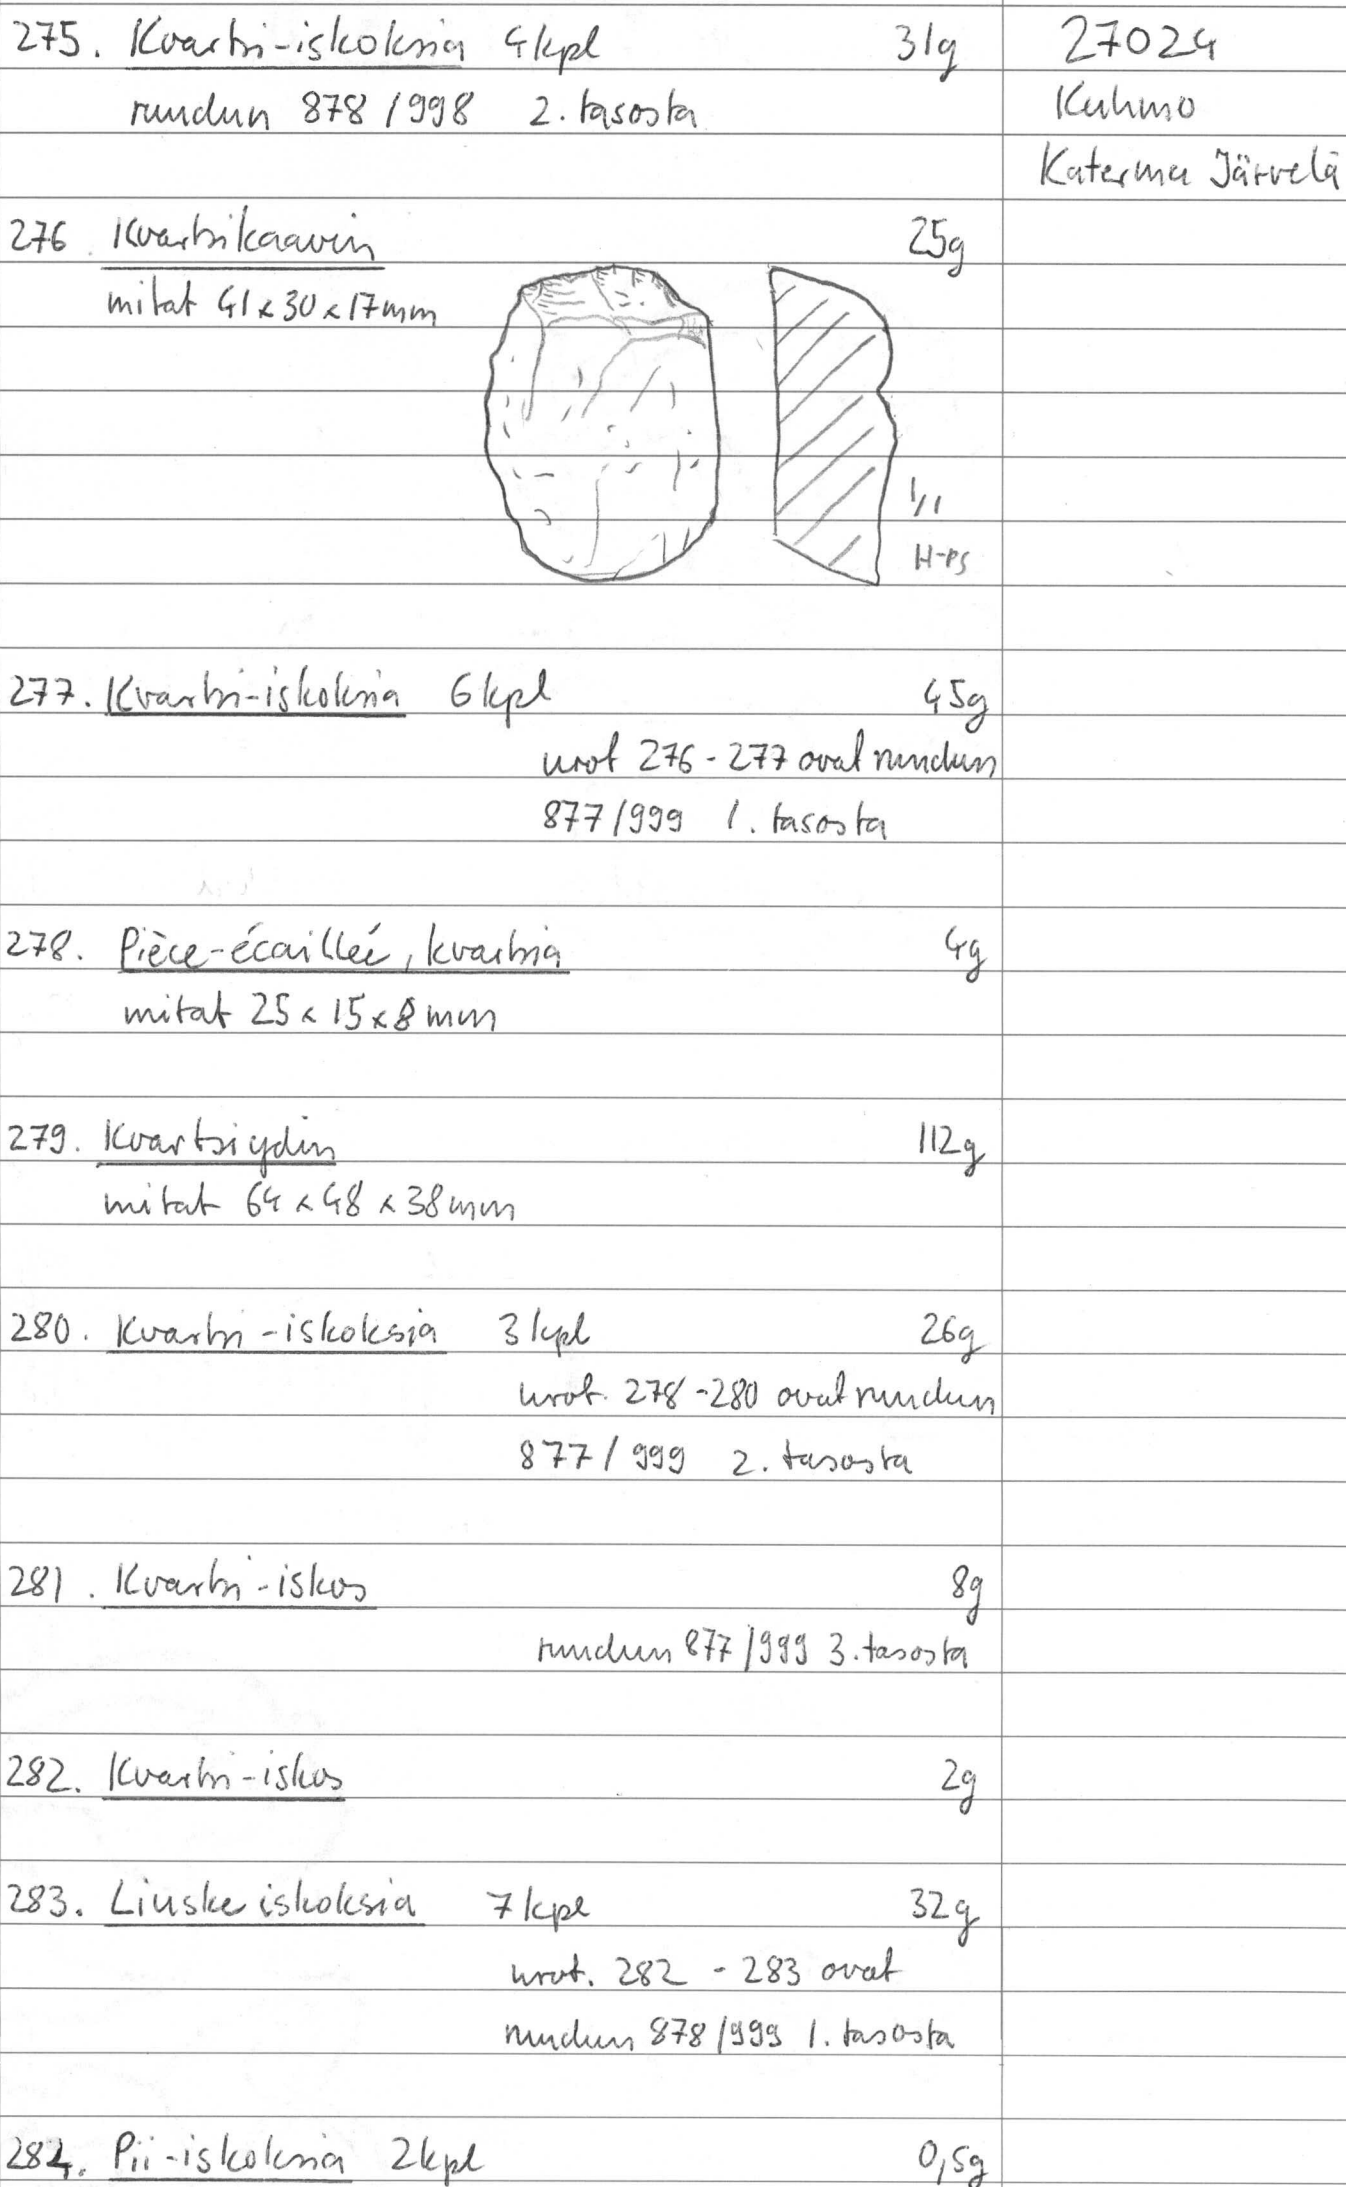 275. Kvartsi-iskoksia 4kpl 31g
ruudun 878/998 2. tasosta
27024
Kuhmo
Katerma Järvelä
276. Kvartsikaavin 25g
mitat 41x30x17mm
1/1
H-PS
277. Kvartsi-iskoksia 6kpl 45g
nrot 276-277 ovat ruudun
877/999 1. tasosta
278. Pièce-écailleé, kvartsia 4g
mitat 25x15x8mm
279. Kvartsiydin 112g
mitat 64x48x38mm
280. Kvartsi-iskoksia 3kpl 26g
nrot. 278-280 ovat ruudun
877/999 2. tasosta
281. Kvartsi-iskos 8g
ruudun 877/999 3. tasosta
282. Kvartsi-iskos 2g
283. Liuskeiskoksia 7kpl 32g
nrot. 282 - 283 ovat
ruudun 878/999 1. tasosta
284. Pii-iskoksia 2kpl 0,5g